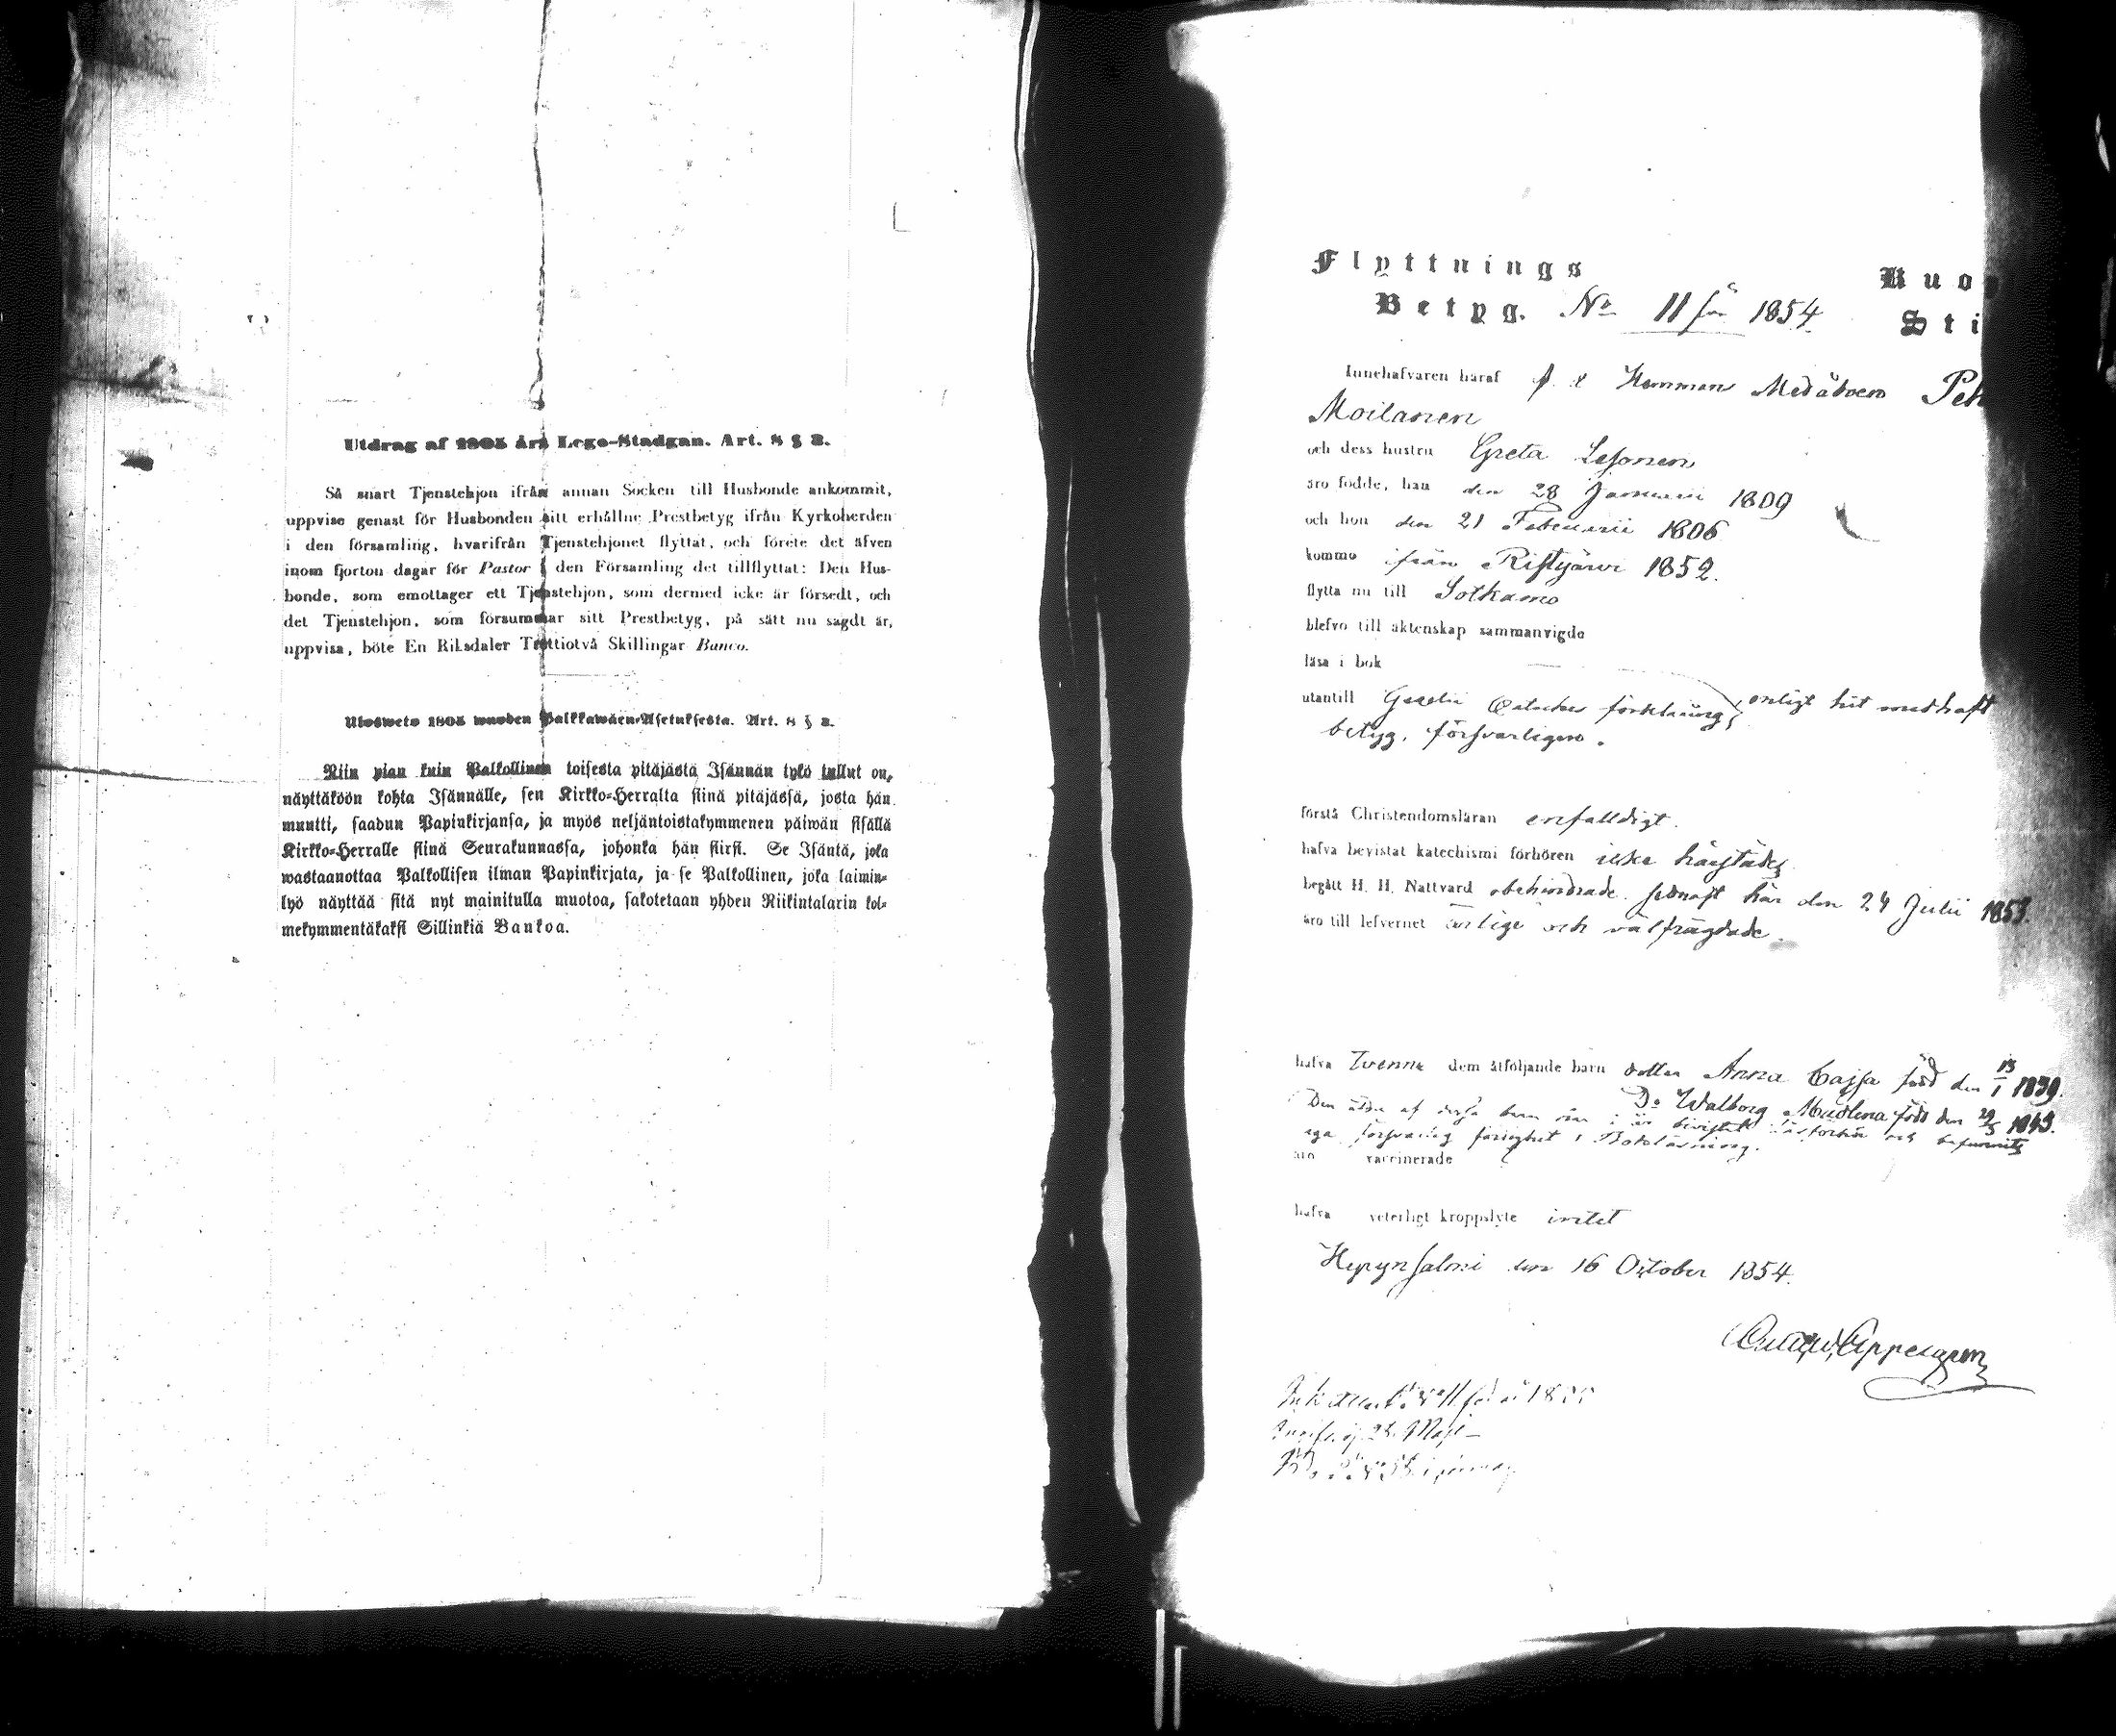 Utdrag af 1805 års Lego-Stadgan. Art. 8 § 3.
Så snart Tjenstehjon ifrån annan Socken till Husbonde ankommit,
uppvise genast för Husbonden sitt erhållne Prestbetyg ifrån Kyrkoherden
i den församling, hvarifrån Tjenstehjonet flyttat, och förete det äfven
inom fjorton dagar för Pastor i den Församling det tillflyttat: Den Hus-
bonde, som emottager ett Tjenstehjon, som dermed icke är försedt, och
det Tjenstehjon, som försummar sitt Prestbetyg, på sätt nu sagdt är,
uppvisa, böte En Riksdaler Trettiotvå Skillingar Banco.
Ulosweto 1805 wuoden Palkkawäen-Asetuksesta. Art. 8 § 3.
Niin pian kuin Palkollinen toisesta pitäjästä Isännän tykö tullut on,
näyttäköön kohta Isännälle, sen Kirkko-Herralta siinä pitäjässä, josta hän
muutti, saadun Papinkirjansa, ja myös neljäntoistakymmenen päiwän sisällä
Kirkko-Herralle siinä Seurakunnassa, johonka hän siirsi. Se Isäntä, joka
wastaanottaa Palkollisen ilman Papinkirjata, ja se Palkollinen, joka laimin-
lyö näyttää sitä nyt mainitulla muotoa, sakotetaan yhden Riikintalarin kol-
mekymmentäkaksi Sillinkiä Bankoa.
Flyttnings
Betyg. No 11 för 1854
Kuop
Sti
Innehafvaren häraf f. d Hemman Medåboen Peh
Moilanen
och dess hustru Greta Lesonen
äro födde, han den 28 Januarii 1809
och hon den 21 Februarii 1806
kommo ifrån Ristijärvi 1852.
flytta nu till Sotkamo
blefvo till äktenskap sammanvigde
läsa i bok
utantill Gezelii Cateches förklaring, enligt hit medhaft
betyg, försvarligen.
förstå Christendomsläran enfalldigt.
hafva bevistat katechismi förhören icke härstädes
begått H. H. Nattvard obehindrade. senast här den 24 Julii 1853.
äro till lefvernet ärlige och välfrägdade.
hafva tvenne dem åtföljande barn dotter Anna Cajsa född den 13/1 1839.
Do Walborg Madlena född den 29/5 1843.
Den äldre af dessa barn i år bevistat läsförhör och befunnits
ega försvarlig färdighet i Bokläsning.
äro vaccinerade
hafva veterligt kroppslyte intet
Hyrynsalmi den 16 October 1854.
Gustaf Appelgren